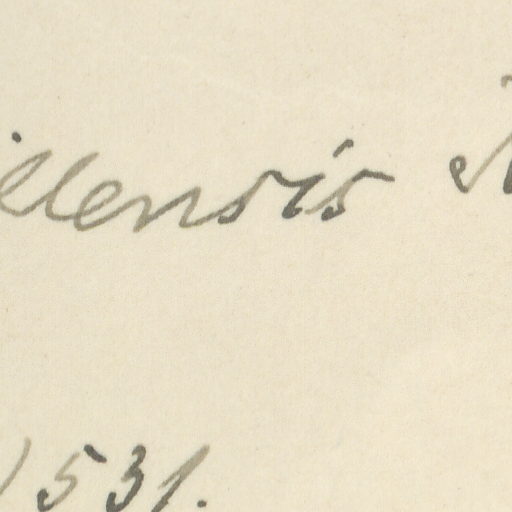 illensis
531.